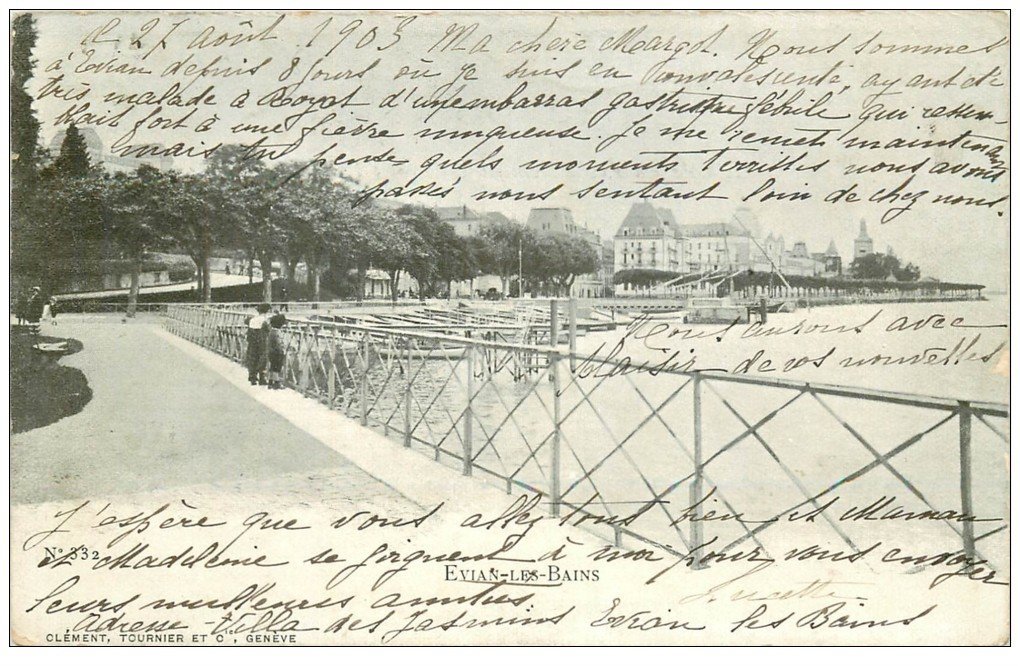 le 27 août 1903 Ma chère Margot. Nous sommes
à Evian depuis 8 jours où je suis en convalescente, ayant été
très malade à Royat d'un embarras gastrique fébrile qui ressem-
blait fort à une fièvre muqueuse. Je me remets maintenant
mais tu penses quels moments terribles nous avons
passés nous sentant loin de chez nous.
Nous aurons avec
plaisir de vos nouvelles
J'espère que vous allez tous bien et Maman
et Madeleine se joignent à moi pour vous envoyer
leurs meilleures amitiés
Adresse Villa des Jasmins Evian les Bains
N° 332
EVIAN-LES-BAINS
CLÉMENT, TOURNIER ET Cie, GENÈVE